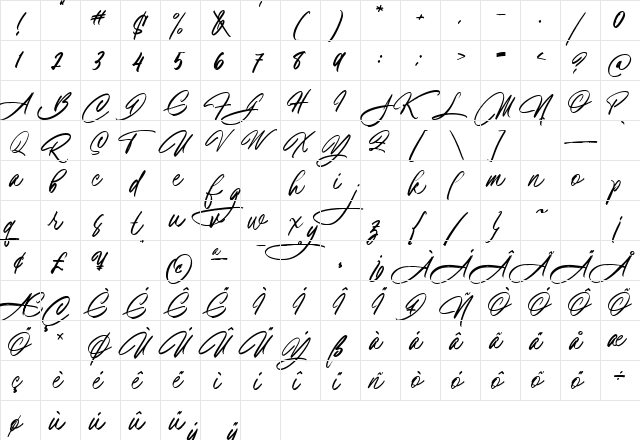 ! " # $ % & ( ) * + , - . / 0
1 2 3 4 5 6 7 8 9 : ; > = < ? @
A B C D E F G H I J K L M N O P
Q R S T U V W X Y Z [ \ ] _
a b c d e f g h i j k l m n o p
q r s t u v w x y z { | } ~ ¡
¢ £ ¥ © ª ¯ · º À Á Â Ã Ä Å
Æ Ç È É Ê Ë Ì Í Î Ï Ð Ñ Ò Ó Ô Õ
Ö × Ø Ù Ú Û Ü Ý ß à á â ã ä å æ
ç è é ê ë ì í î ï ñ ò ó ô õ ö ÷
ø ù ú û ü ý ÿ